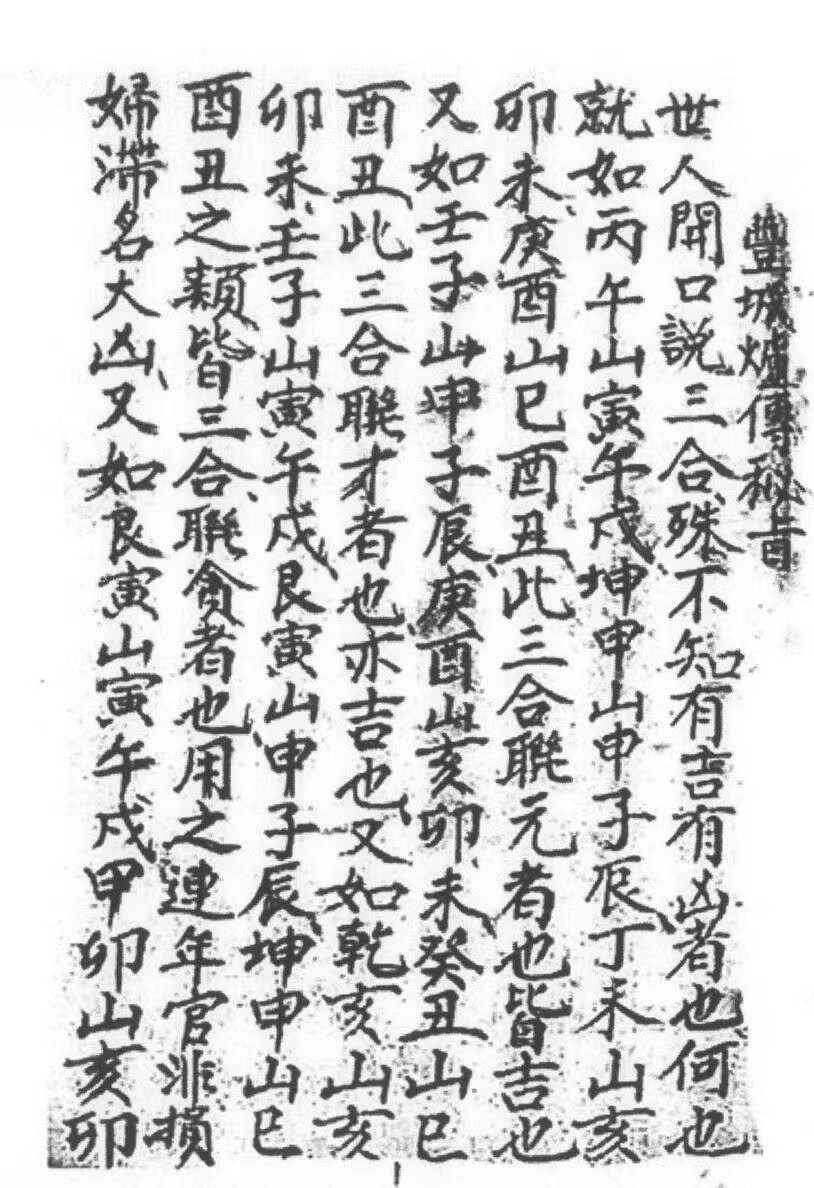 豐城爐傳秘旨
世人開口説三合殊不知有吉有凶者也何也
就如丙午山寅午戍坤申山申子辰丁未山亥
卯未庚酉山巳酉丑此三合聯元者也皆吉也
又如壬子山申子辰庚酉山亥卯未癸丑山巳
酉丑此三合聯才者也亦吉也又如乾亥山亥
卯未壬子山寅午戍艮寅山申子辰坤申山巳
酉丑之類皆三合聯貪者也用之連年官非損
婦滞名大凶又如艮寅山寅午戍甲卯山亥卯
1